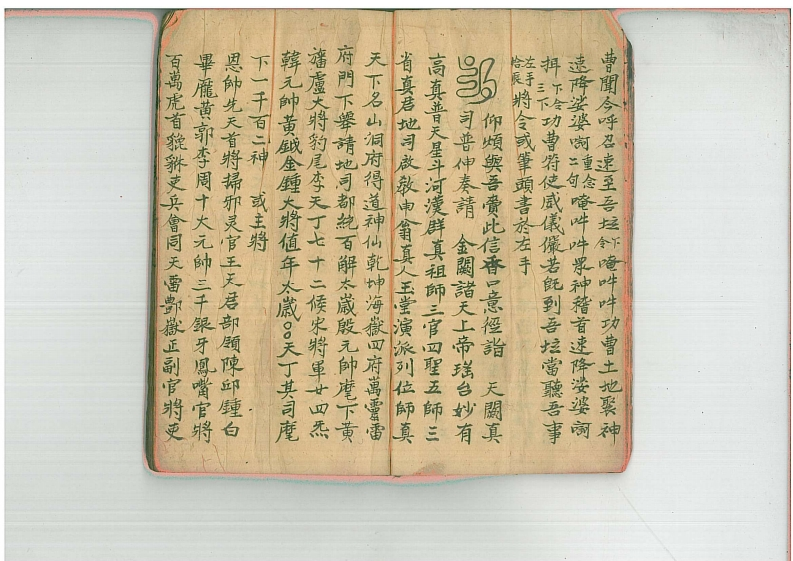 曹聞今呼召速至吾坛令下唵吽吽功曹土地眾神
速降娑婆訶二句重念唵吽吽眾神稽首速降娑婆訶
揖三下下令功曹符使威儀儼若旣到吾坛當聽吾事
左手抬辰將令或筆頭書於左手
仰煩與吾賫此信香口意徑詣 天闕真
司普伸奏請 金闕諸天上帝瑤台妙有
高真普天星斗河漢群真祖師三官四聖五師三
省真君地司啟教申翁真人玉堂演派列位師真
天下名山洞府得道神仙乾坤海嶽四府萬靈雷
府門下舉請地司都統百解太歲殷元帥麾下黃
旛盧大將豹尾李天丁七十二候宋將軍廿四炁
韓元帥黃鉞金鍾大將值年太歲〇〇天丁其司麾
下一千百二神 或主將
恩帥先天首將掃邪灵官王天君部領陳邱鍾白
畢龐黃郭李周十大元帥三千銀牙鳳嘴官將
百萬虎首貔貅吏兵會同天雷酆嶽正副官將吏